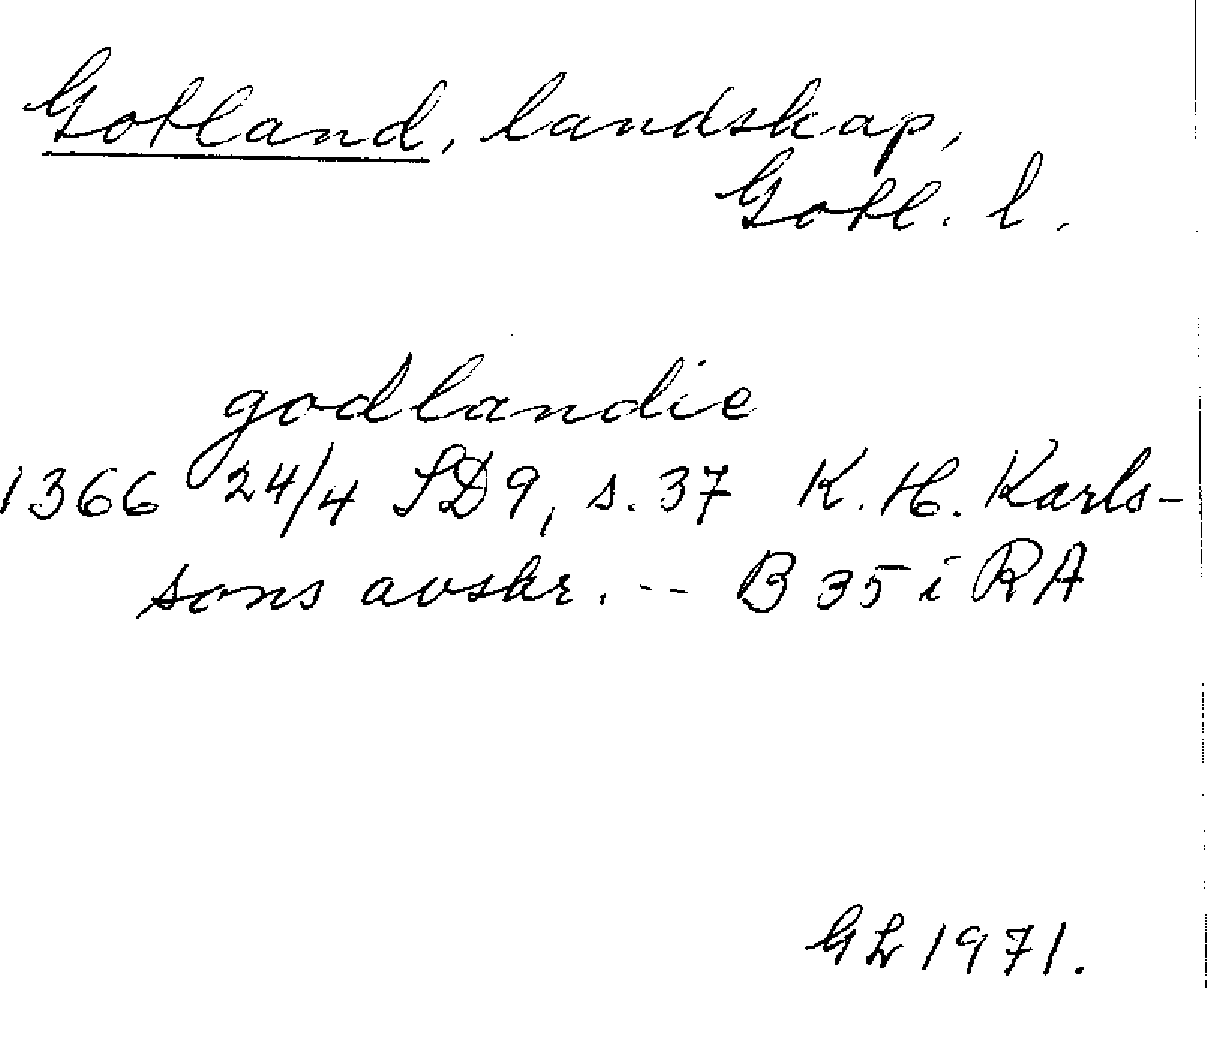 Gotland, landskap,
Gotl. l.
godlandie
1366 24/4 SD9, s. 37 K. H. Karls-
sons avskr. -- B 35 i RA
GL 1971.